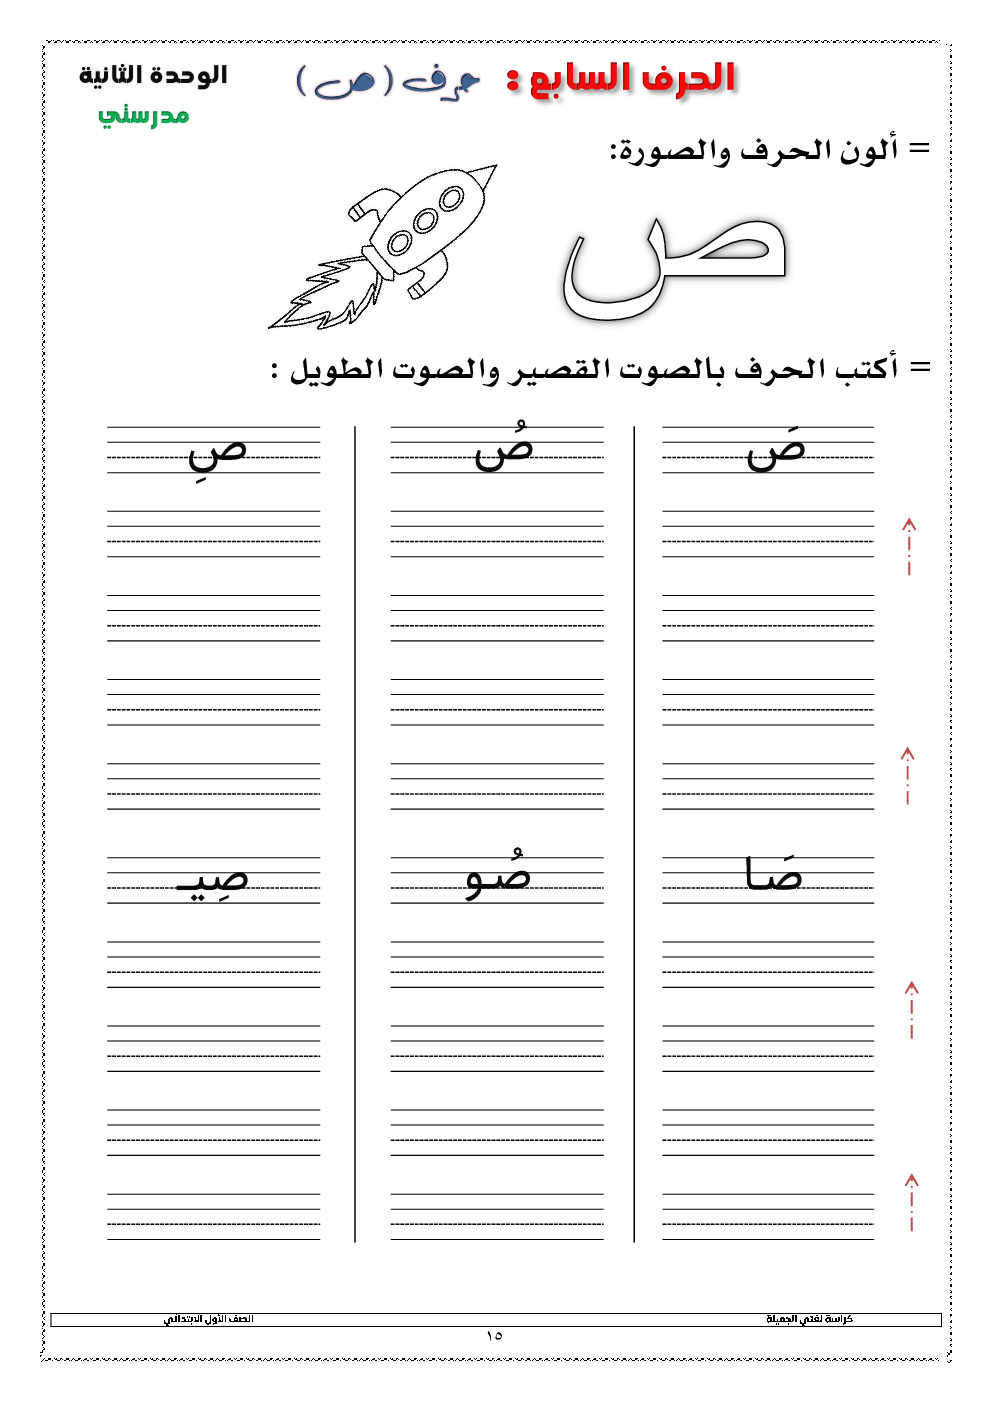 الحرف السابع : حرف ( ص ) الوحدة الثانية
مدرستي
= ألون الحرف والصورة:
ص
= أكتب الحرف بالصوت القصير والصوت الطويل :
صَ صُ صِ
صَـا صُـو صِيـ
كراسة لغتي الجميلة الصف الأول الابتدائي
١٥